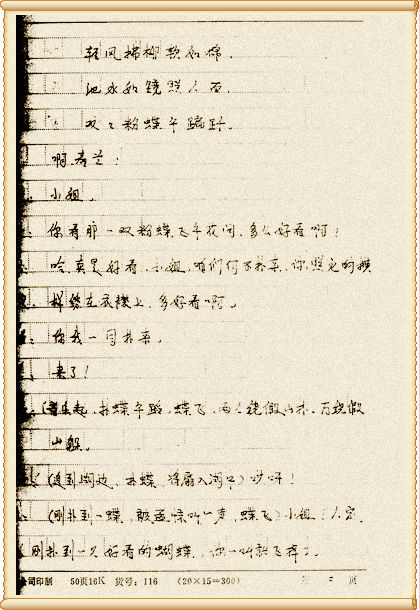 轻风拂柳软如棉.
池水如镜照人面.
双双粉蝶乍蹁跹.
啊,春兰:
小姐.
你看那一双粉蝶飞在花间,多么好看啊!
哈,真是好看,小姐,咱们何不扑来,你照它的模
样绣在衣裙上,多好看啊。
你我一同扑来.
来了!
起,扑蝶乍蹈,蝶飞,两人绕假山扑,万绕假
山躲.
(追到湖边,扑蝶,将扇入湖中)哎呀!
(刚扑到一蝶,被孟惊叫一声,蝶飞)小姐!人家
刚扑到一只好看的蝴蝶,你一叫就飞掉了.
公司印制 50页16K 货号:116 (20×15=300) 第 页